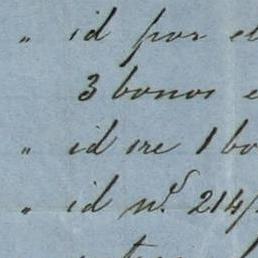 " id por el
3 bonos e
" id ire 1 bo
" id nº. 214/